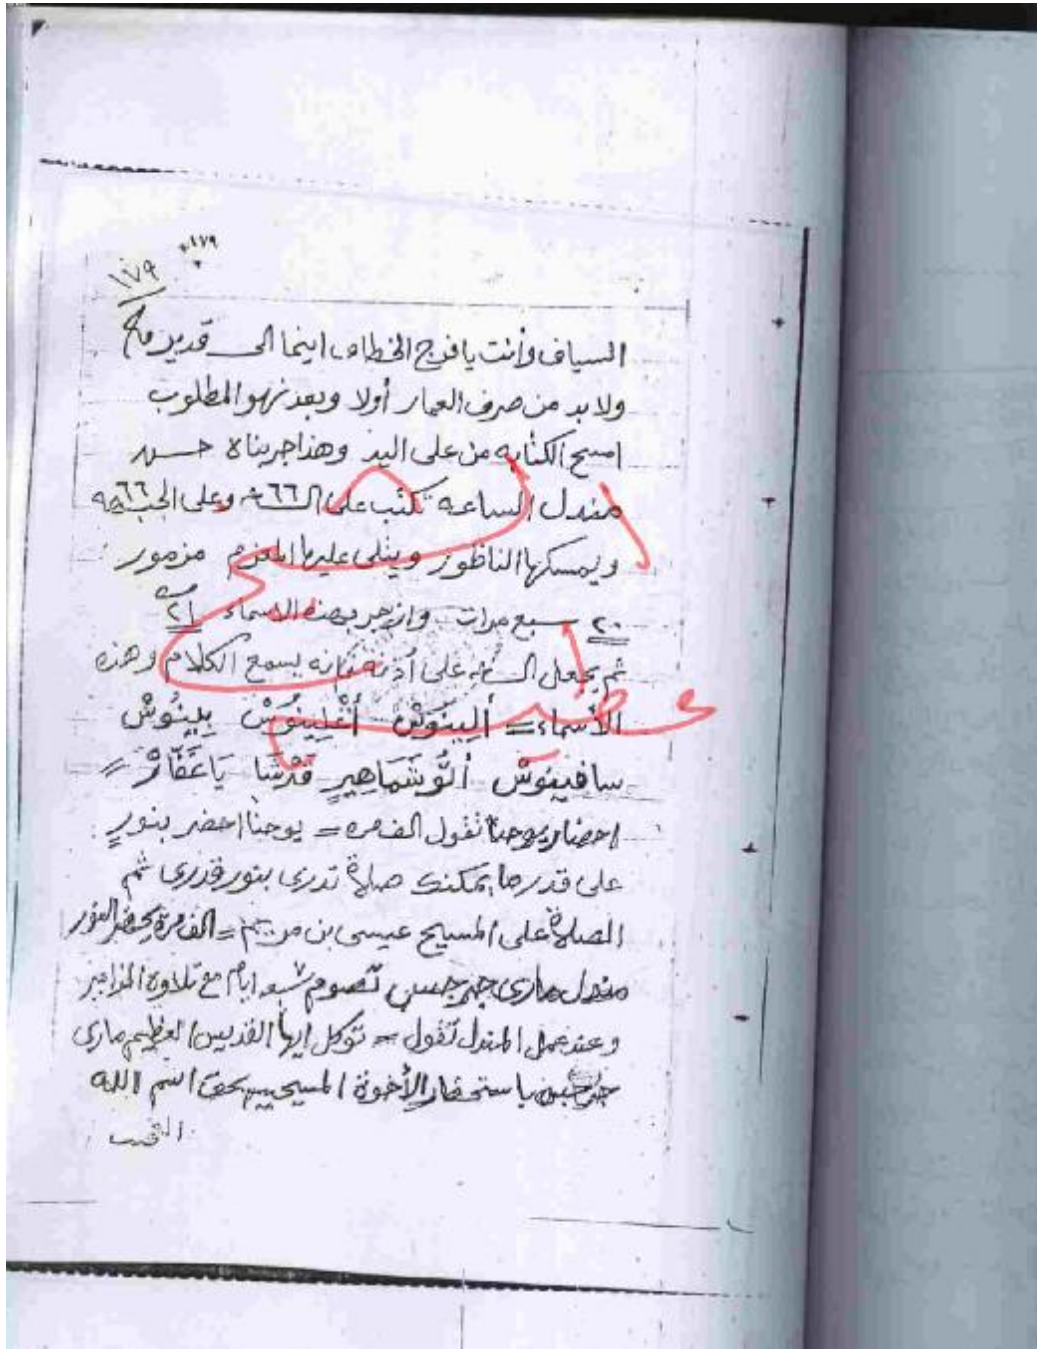 ١٧٩
١٧٩
السياف وأنت يا فرج الخطاف اينما الى قدير
ولا بد من صرف العمار أولا وبعد نهو المطلوب
امسح الكتابه من على اليد وهذا جربناة
مندل الساعه تكتب على ال ٦٦ وعلى الجبهه ٦٦
ويمسكها الناظور ويتلى عليها المعزم مزمور
٢٠ سبع مرات وازجر بهذه الاسماء ٢١
ثم يجعل على أذنه فانه يسمع الكلام وهذه
الأسماء = أَلِيبَنُوشْ أَغْلِينُوشْ بِلِينُوشْ
سافينوش شَمَاهِيرٍ قَدْشَا يَا غَفَّارْ =
احضار يوحنا تقول الف مره = يوحنا احضر بنورٍ
على قدر ما يمكنك صلاة تدرى بنور قدرى ثم
الصلاة على المسيح عيسى بن مريم = الف مرة يحضر النور
مندل مارى جرجس تصوم ٧ ايام مع تلاوة المزامير
وعند عمل المندل تقول = توكل ايها القديس العظيم مارى
جرجس باستحضار الأخوة المسيحيين بحق اسم الله